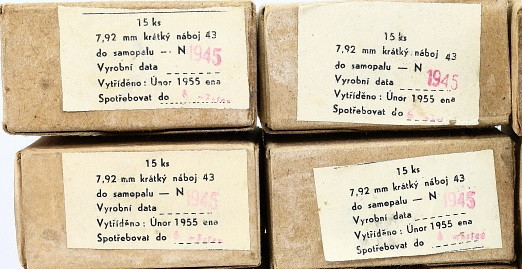 15 ks
7,92 mm krátký náboj 43
do samopalu — N 1945
Vyrobní data
Vytříděno: Únor 1955 ena
Spotřebovat do 6
15 ks
7,92 mm krátký náboj 43
do samopalu — N
Vyrobní data 1945
Vytříděno: Únor 1955 ena
Spotřebovat do 6
15 ks
7,92 mm krátký náboj 43
do samopalu — N 1945
Vyrobní data
Vytříděno: Únor 1955 ena
Spotřebovat do 6
15 ks
7,92 mm krátký náboj 43
do samopalu — N 1945
Vyrobní data
Vytříděno: Únor 1955 ena
Spotřebovat do 6